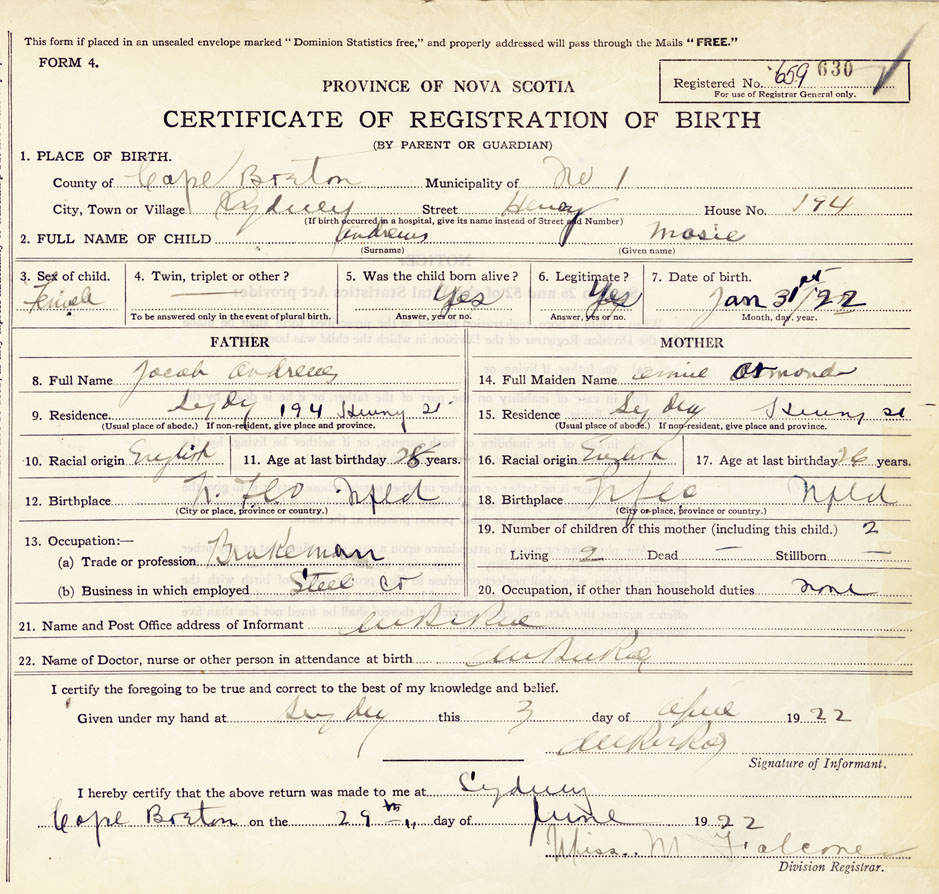 This form if placed in an unsealed envelope marked "Dominion Statistics free," and properly addressed will pass through the Mails "FREE."
FORM 4.
Registered No. 659 630
For use of Registrar General only.
PROVINCE OF NOVA SCOTIA
CERTIFICATE OF REGISTRATION OF BIRTH
(BY PARENT OR GUARDIAN)
1. PLACE OF BIRTH.
County of Cape Breton Municipality of No 1
City, Town or Village Sydney Street Henry House No. 194
(If birth occurred in a hospital, give its name instead of Street and Number)
2. FULL NAME OF CHILD Andrews Mosie
(Surname) (Given name)
3. Sex of child. 4. Twin, triplet or other? 5. Was the child born alive? 6. Legitimate? 7. Date of birth.
Female — Yes Yes Jan 31st/22
To be answered only in the event of plural birth. Answer, yes or no. Answer, yes or no. Month, day, year.
FATHER
8. Full Name Jacob Andrews
9. Residence Sydney 194 Henry St
(Usual place of abode.) If non-resident, give place and province.
10. Racial origin English 11. Age at last birthday 28 years.
12. Birthplace Nfld
(City or place, province or country.)
13. Occupation:—
(a) Trade or profession Brakeman
(b) Business in which employed Steel Co
MOTHER
14. Full Maiden Name Osmond
15. Residence Sydney Henry St
(Usual place of abode.) If non-resident, give place and province.
16. Racial origin English 17. Age at last birthday 26 years.
18. Birthplace Nfld
(City or place, province or country.)
19. Number of children of this mother (including this child.) 2
Living 2 Dead — Stillborn —
20. Occupation, if other than household duties None
21. Name and Post Office address of Informant
22. Name of Doctor, nurse or other person in attendance at birth
I certify the foregoing to be true and correct to the best of my knowledge and belief.
Given under my hand at Sydney this 3 day of April 1922
Signature of Informant.
I hereby certify that the above return was made to me at Sydney
Cape Breton on the 29th day of June 1922
Miss. M Falconer
Division Registrar.